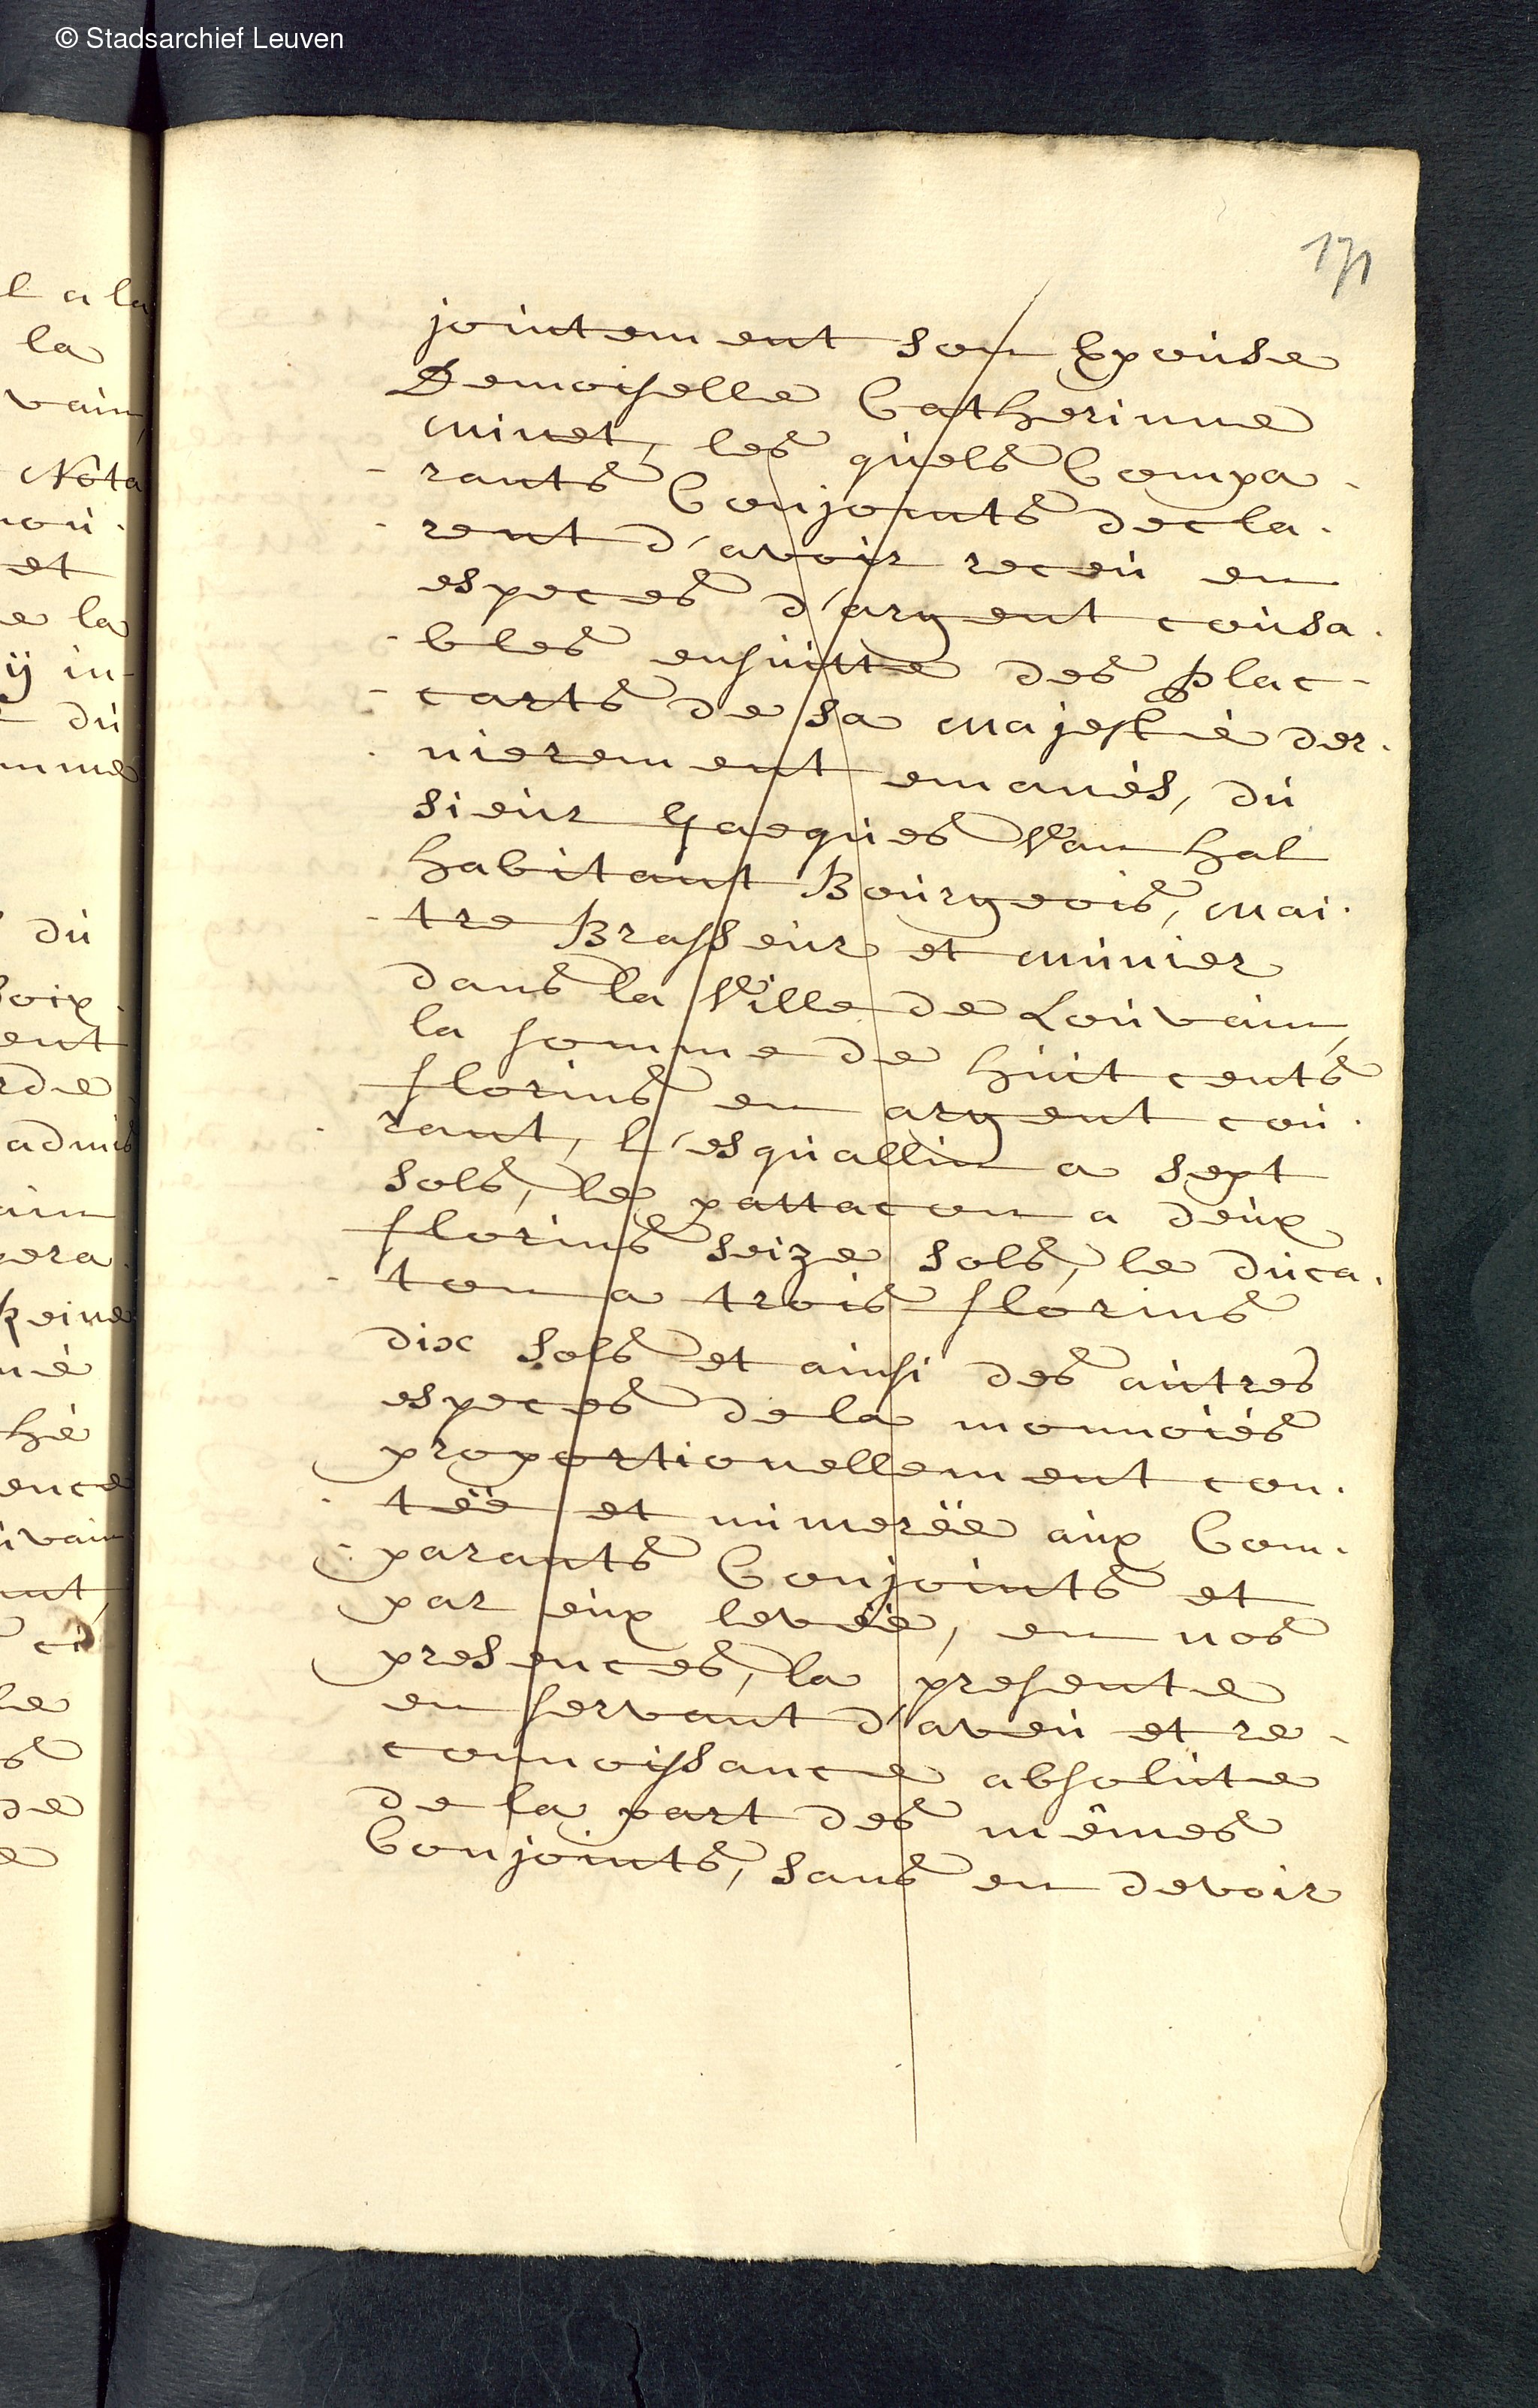 © Stadsarchief Leuven
171
jointement son Epoúse
Demoiselle Catherinne
Minet, les qúels Compa-
rants Conjoints decla-
rent d'avoir receú en
especes d'argent coúsa-
bles ensúitte des plac-
carts de sa Majesté der-
nierement emanés, dú
sieúr Jacqúes Van hal
habitant Boúrgeois, Mai-
tre Brasseúr et Múnier
dans la Ville de Loúvain,
la somme de húit cents
florins en argent coú-
rant, l'esqúallin a sept
sols, le pattacon a deúx
florins seize sols, le dúca-
ton a trois florins
dix sols et ainsi des aútres
especes de la monnoiés
proportionellement con-
tëë et númerëë aúx Com-
parants Conjoints et
par eúx levëë, en nos
presences, la presente
en servant d'aveú et re-
connoissance absolúte
de la part des mêmes
Conjoints, sans en devoir